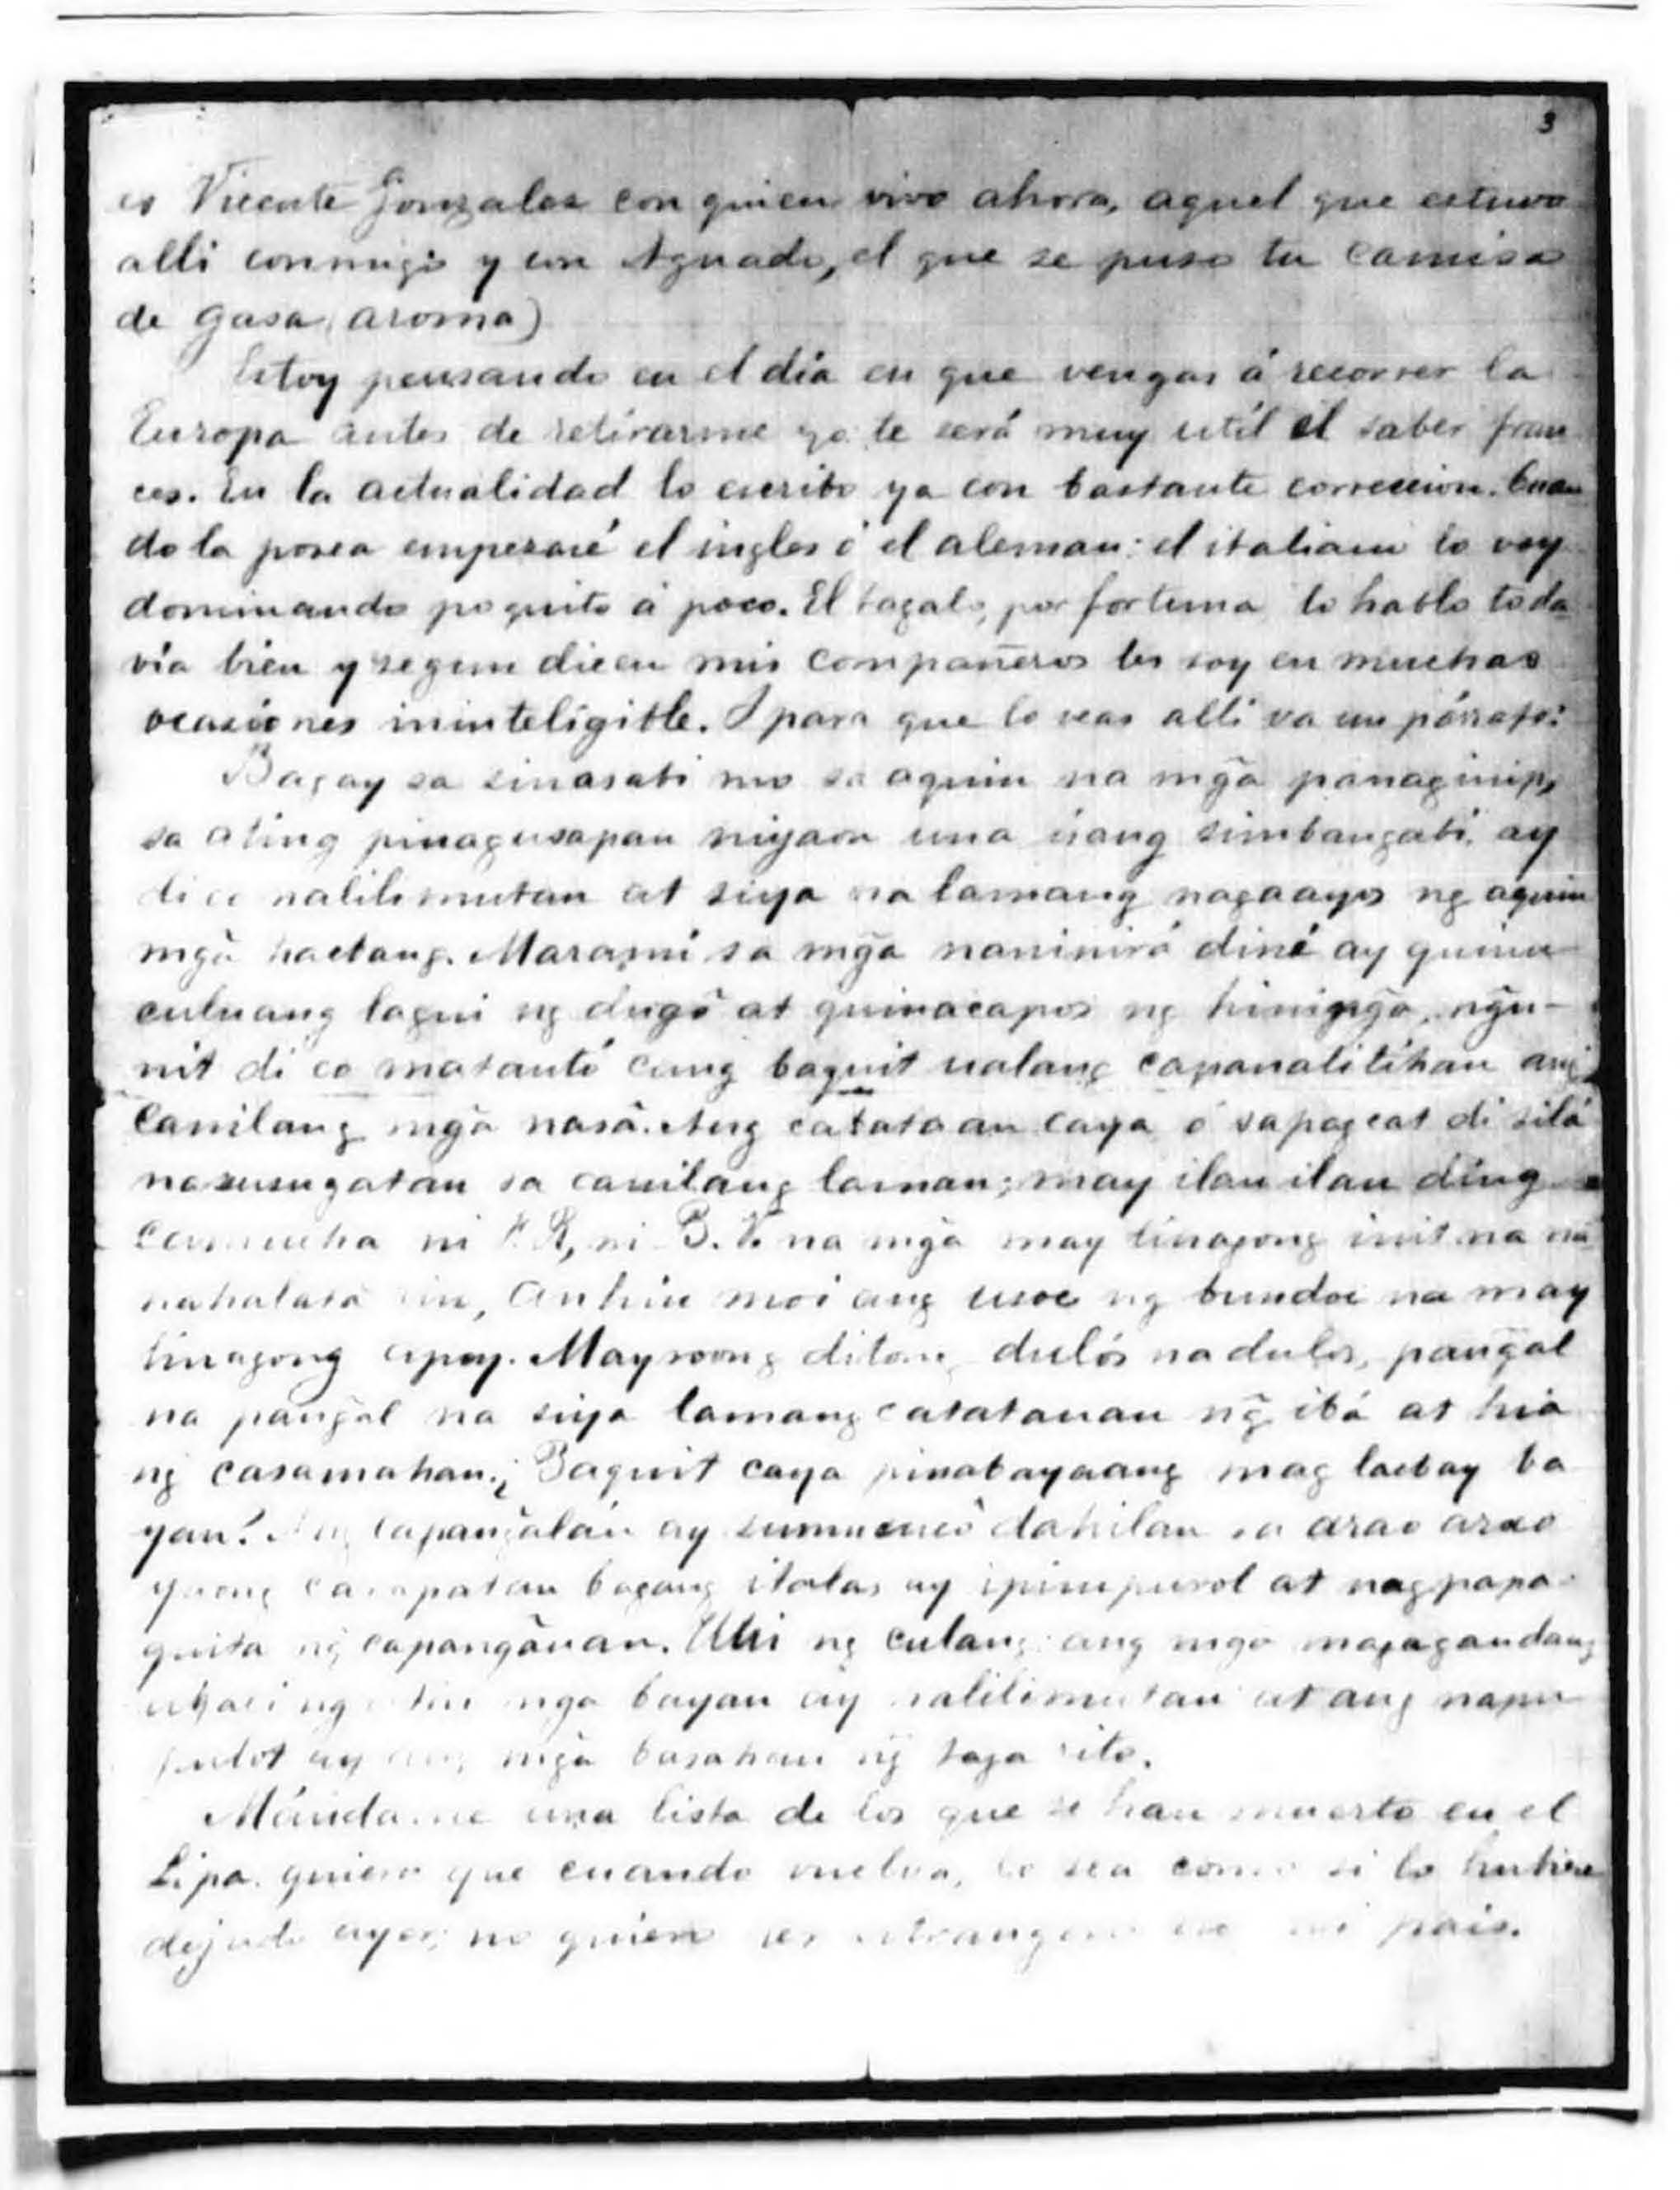 3
es Vicente Gonzalez con quien vivo ahora, aquel que estuvo
alli conmigo y con Aguado, el que se puso tu camisa
de gasa aroma)
Estoy pensando en el dia en que vengas á recorrer la
Europa antes de retirarme yo: te será muy util el saber fran
ces. En la actualidad lo escribo ya con bastante correccion. Cuan
do lo posea empezaré el ingles ó el aleman: el italiano lo voy
dominando poquito á poco. El tagalo, por fortuna, lo hablo toda
vía bien y segun dicen mis compañeros les soy en muchas
ocasiones ininteligible. I para que lo veas alli va un párrafo:
Bagay sa sinasabi mo sa aquin na mg̃a panaginip,
sa ating pinagusapan niyaon una isang simbangabi, ay
di co nalilimutan at siya na lamang nagaayos ng aquin
mg̃a hacbang. Marami sa mg̃a naninirá diné ay quinu
culuang lagui ng dugô at quinacapos ng hining̃a, ng̃u-
nit di co matantô cung baquit ualang capanalitihan ang
canilang mg̃a nasâ. Ang cabataan caya ó sapagcat di silá
nasusugatan sa canilang laman; may ilan ilan ding
camucha ni P. R, ni B. V. na mg̃a may tinagong init na na
nahalatá rin, anhin moi ang usoc ng bundoc na may
tinagong apoy. Mayroong ditong dulós na dulos, pang̃al
na pang̃al na siya lamang catatauanan ng̃ ibá at hiá
ng casamahan. ¿Baquit caya pinabayaang maglacbay ba
yan? Ang capang̃alán ay sumusucó dahilan sa arao arao
yaong casapatan bagang italas ay ipinupurol at nagpapa
quita ng capang̃auan. Uli ng culang ang mga magagandang
ugali ng mga bayan ay nalilimutan at ang napu
pulot ay ang mg̃a basahan ng̃ taga rito.
Mándame una lista de los que se han muerto en el
Lipa. quiero que cuando vuelva, lo sea como si lo hubiese
dejado ayer; no quiero ser estrangero en mi pais.